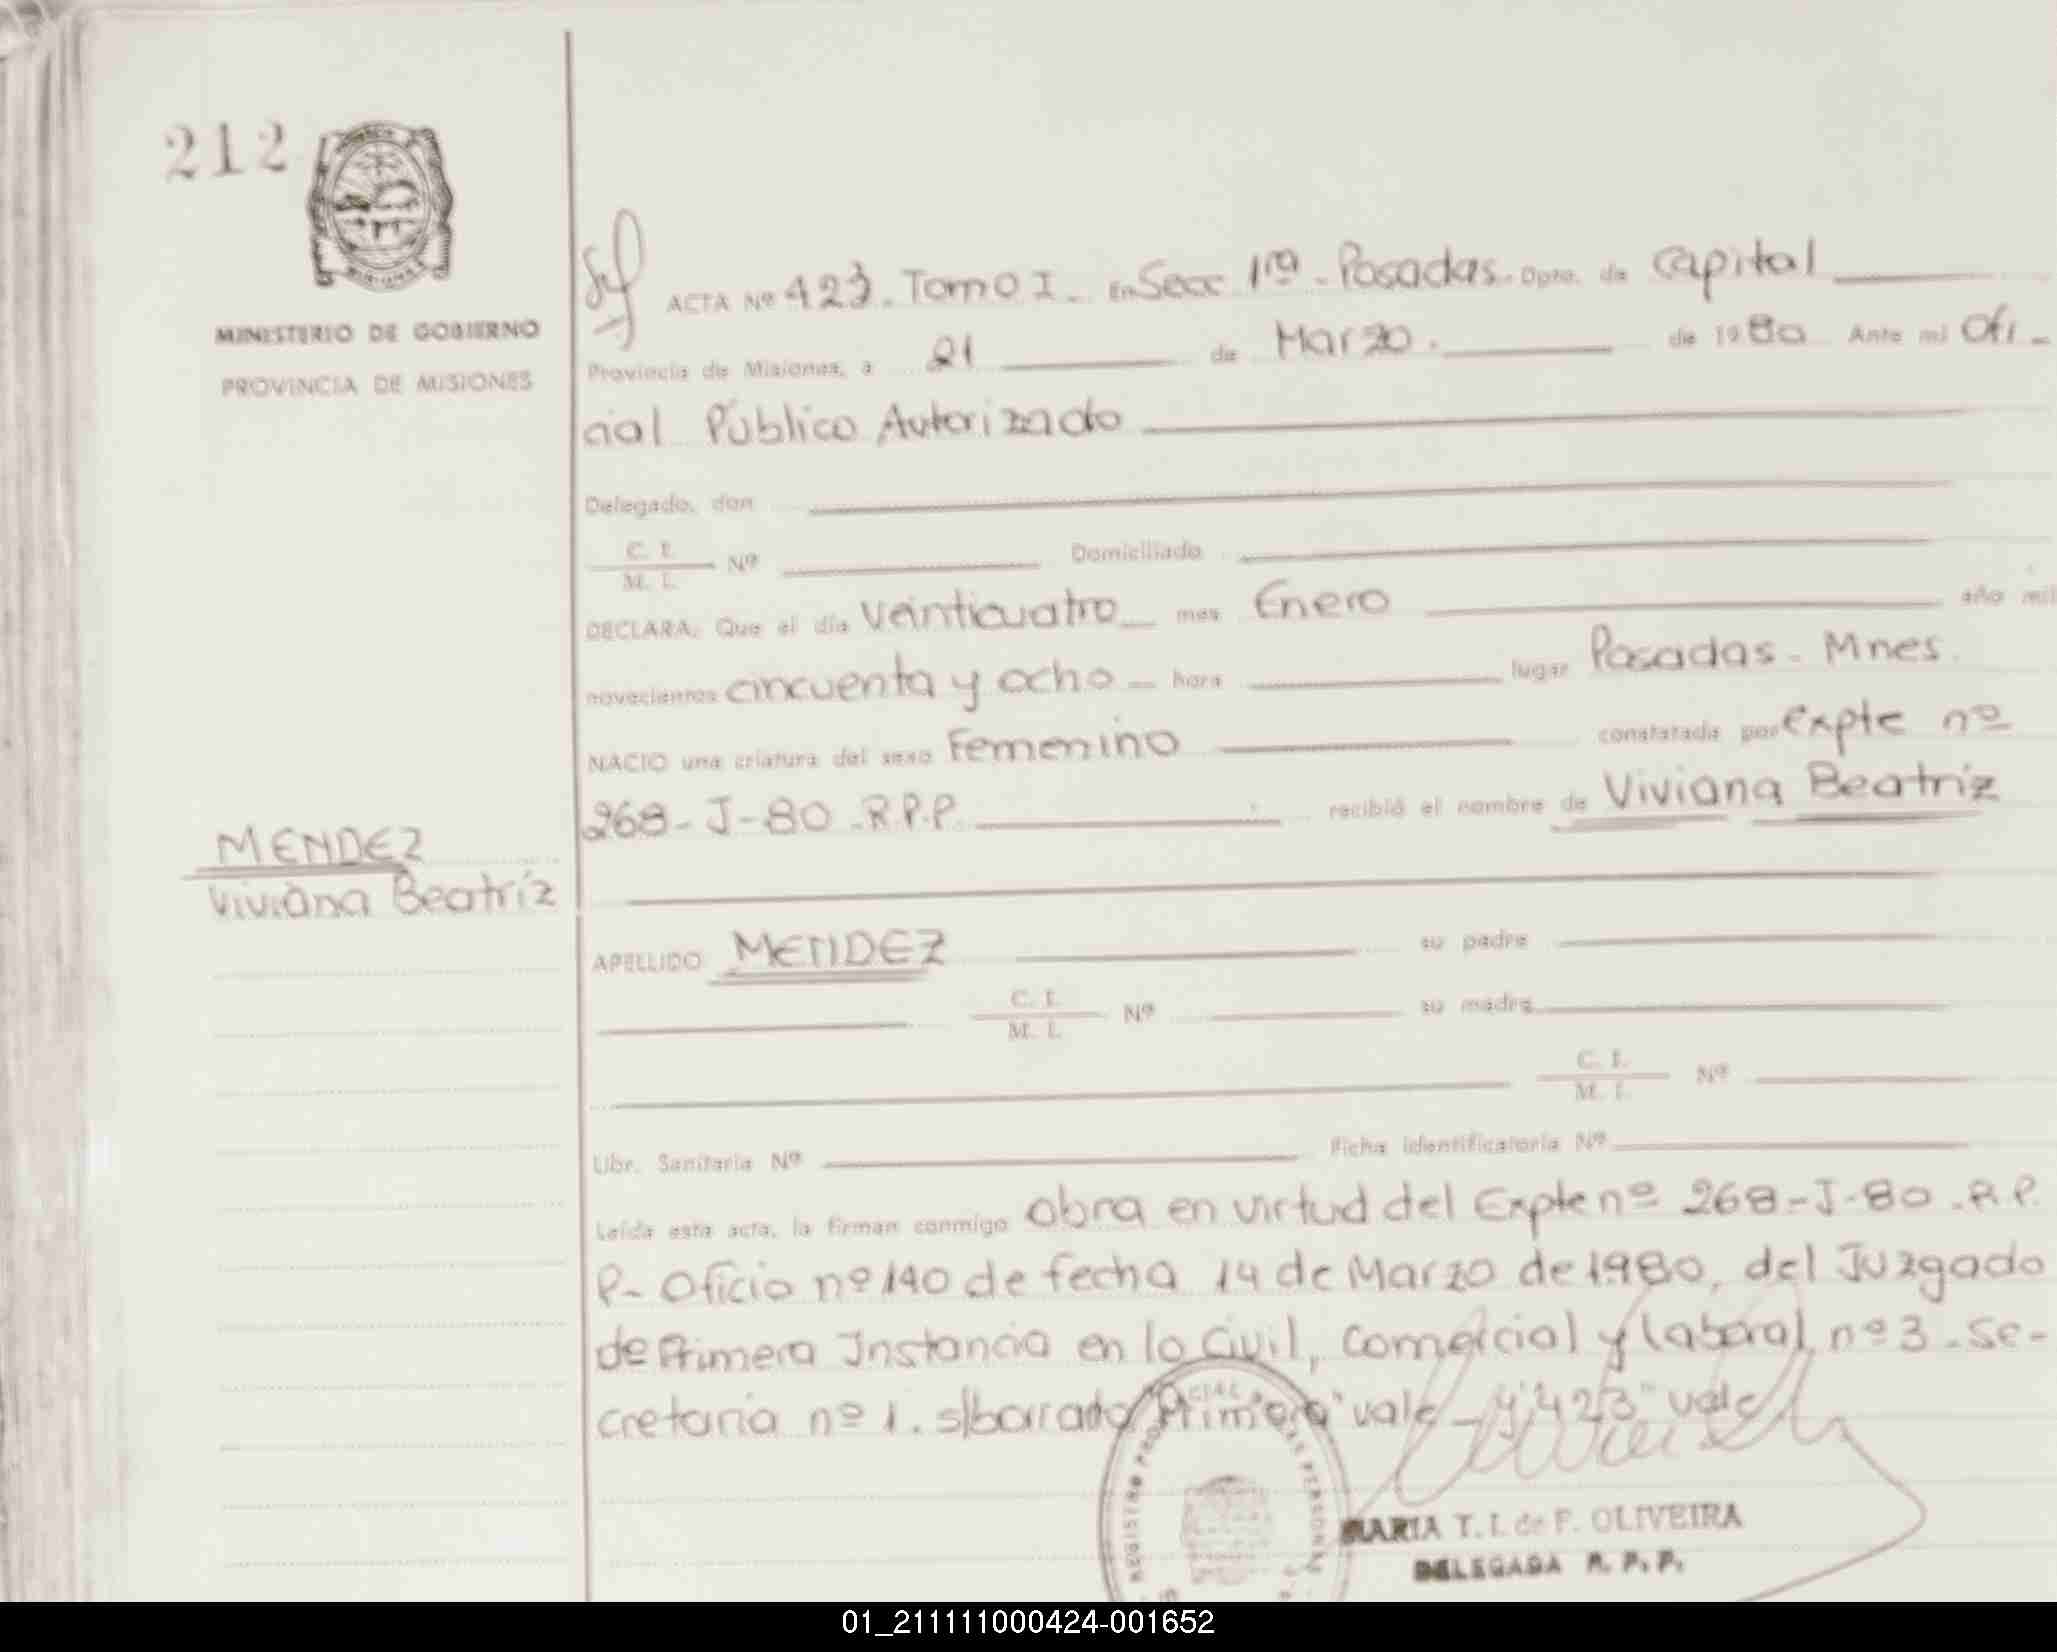 212
MINISTERIO DE GOBIERNO
PROVINCIA DE MISIONES
ACTA Nº 423. Tomo I. En Secc 1ra - Posadas. Dpto. de Capital
Provincia de Misiones, a 21 de Marzo. de 1980 Ante mi Ofi-
cial Público Autorizado
Delegado, don
C. I.
M. I. Nº Domiciliado
DECLARA: Que el día Veinticuatro mes Enero año mil
novecientos cincuenta y ocho hora lugar Posadas - Mnes.
NACIO una criatura del sexo Femenino constatada por expte nº
268-J-80.R.P.P. recibió el nombre de Viviana Beatriz
MENDEZ
Viviana Beatriz
APELLIDO MENDEZ su padre
C. I.
M. I. Nº su madre
C. I.
M. I. Nº
Libr. Sanitaria Nº Ficha identificatoria Nº
Leída esta acta, la firman conmigo obra en virtud del Expte nº 268-J-80.R.P.
P- Oficio nº 140 de fecha 14 de Marzo de 1980, del Juzgado
de Primera Instancia en lo Civil, Comercial y laboral nº 3 - Se-
cretaria nº 1. s/borrado "Primera" vale - y "423" vale
MARIA T. I. de F. OLIVEIRA
DELEGADA R. P. P.
01_211111000424-001652